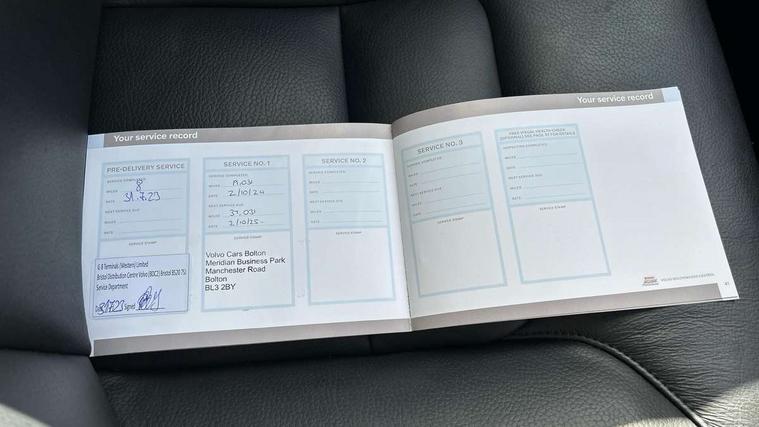 Your service record
PRE-DELIVERY SERVICE
SERVICE COMPLETED
MILES 8
DATE 31.7.23
NEXT SERVICE DUE
MILES
DATE
SERVICE STAMP
G B Terminals (Western) Limited
Bristol Distribution Centre Volvo (BDC2) Bristol BS20 7SJ
Service Department
Signed
SERVICE NO. 1
SERVICE COMPLETED
MILES
DATE 2/10/24
NEXT SERVICE DUE
MILES 37,031
DATE 2/10/25
SERVICE STAMP
Volvo Cars Bolton
Meridian Business Park
Manchester Road
Bolton
BL3 2BY
SERVICE NO. 2
SERVICE COMPLETED
MILES
DATE
NEXT SERVICE DUE
MILES
DATE
SERVICE STAMP
Your service record
SERVICE NO. 3
SERVICE COMPLETED
MILES
DATE
NEXT SERVICE DUE
MILES
DATE
SERVICE STAMP
FREE VISUAL HEALTH CHECK
INSPECTION COMPLETED
MILES
DATE
NEXT SERVICE DUE
MILES
DATE
SERVICE STAMP
41